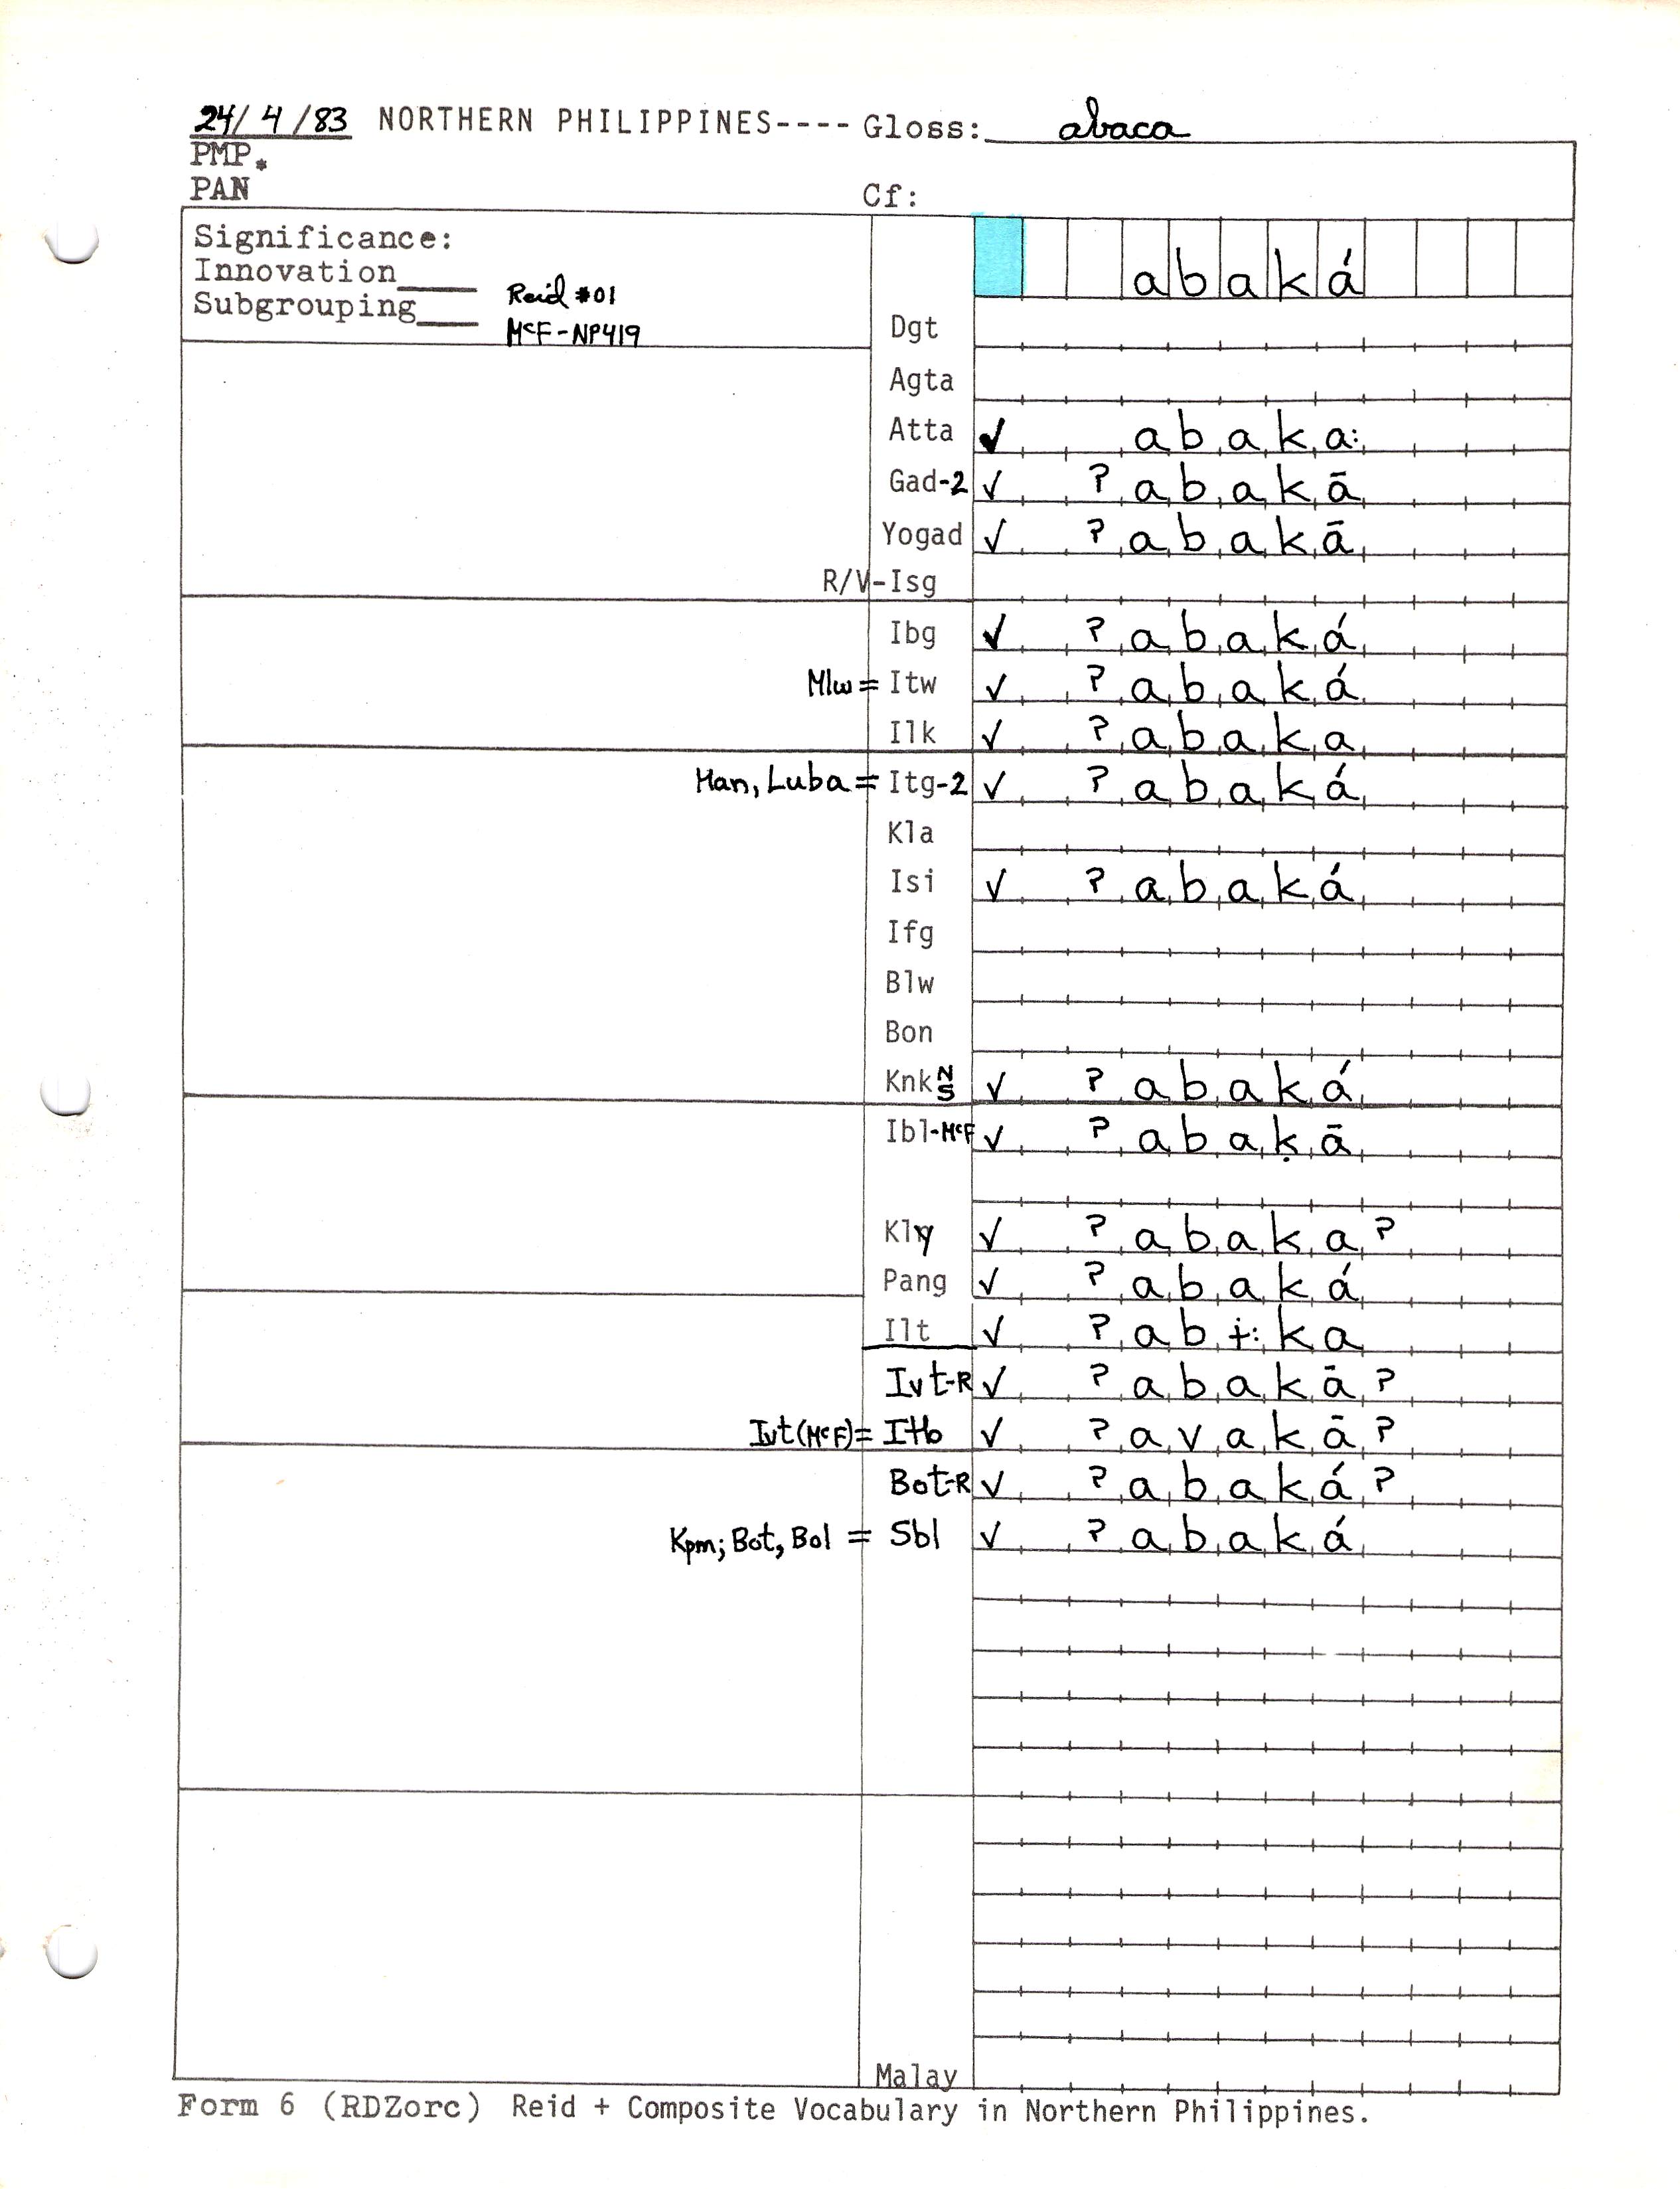 24/4/83 NORTHERN PHILIPPINES---- Gloss: abaca
PMP*
PAN Cf:
Significance:
Innovation____
Subgrouping____
Reid #01
McF-NP419
abaká
Dgt
Agta
Atta ✓ abaka:
Gad-2 ✓ ʔabakā
Yogad ✓ ʔabakā
R/V-Isg
Ibg ✓ ʔabaká
Mlw = Itw ✓ ʔabaká
Ilk ✓ ʔabaka
Han, Luba = Itg-2 ✓ ʔabaká
Kla
Isi ✓ ʔabaká
Ifg
Blw
Bon
Knk N S ✓ ʔabaká
Ibl-McF ✓ ʔabaḳā
Kly ✓ ʔabakaʔ
Pang ✓ ʔabaká
Ilt ✓ ʔabɨ:ka
Ivt-R ✓ ʔabakāʔ
Ivt(McF)= Itb ✓ ʔavakāʔ
Bot-R ✓ ʔabakáʔ
Kpm; Bot, Bol = Sbl ✓ ʔabaká
Malay
Form 6 (RDZorc) Reid + Composite Vocabulary in Northern Philippines.